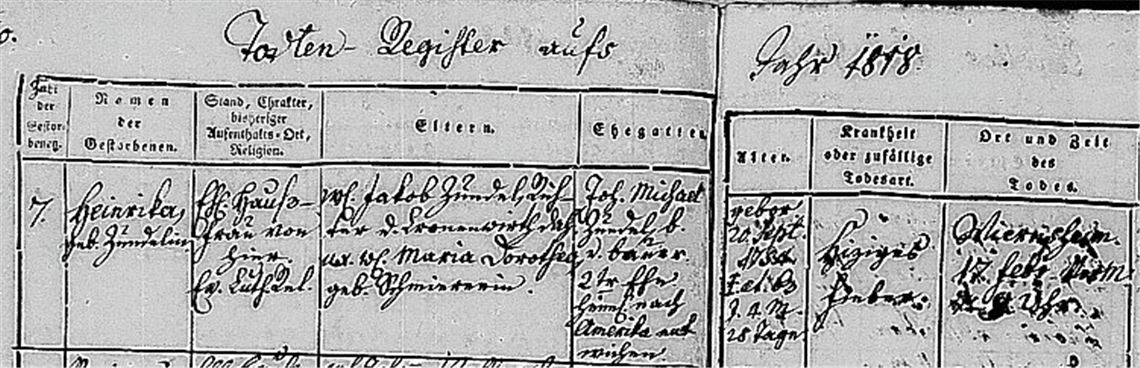 Todten-Register aufs
Jahr 1818.
Zahl
der
Gestor-
benen.
Namen
der
Gestorbenen.
Stand, Chrakter,
bisheriger
Aufenthalts-Ort,
Religion.
Eltern.
Ehegatten
Alter.
Krankheit
oder zufällige
Todesart.
Ort und Zeit
des
Todes.
7.
Heinrika,
geb. Zündelin
Hauß-
frau von
hier.
Ev. Luth Rel.
Jakob Zündel, Rich-
ter d. Cronenwirth
Maria Dorothea,
geb. Schmiererin.
Joh. Michael
Zündel, b.
u. bauer.
2tr Ehe
nach
Amerika ent
wichen
gebor.
20 Sept.
J. 4 M.
28 Tage
Hiziges
Fieber.
Wiernsheim.
17. febr.
Uhr.